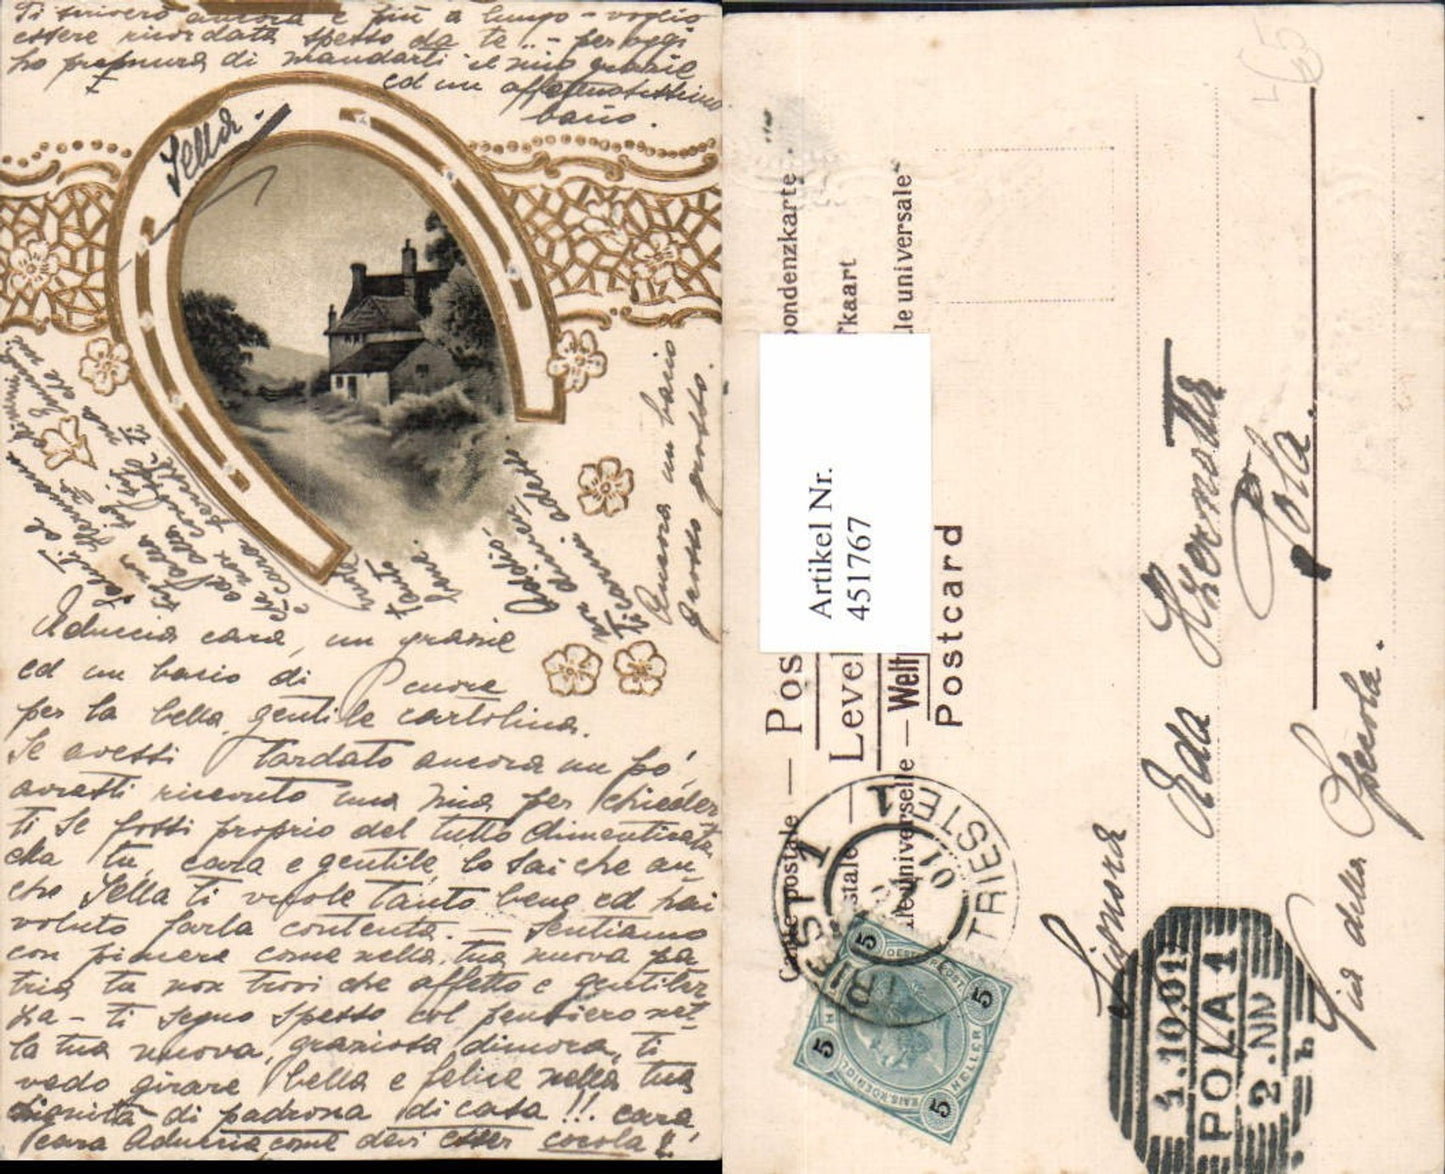 Ti scriverò ancora e più a lungo - voglio
essere ricordata spesso da te - per oggi
ho premura di mandarti il mio grazie
ed un affettuosissimo
bacio.
Sella.
Ancora un bacio
grosso grosso.
Aduccia cara, un grazie
ed un bacio di cuore
per la bella, gentile cartolina.
Se avessi tardato ancora un pò,
avresti ricevuto una mia per chieder
ti se fossi proprio del tutto dimenticata
da tu, cara e gentile, lo sai che an
che Sella ti vuole tanto bene ed hai
voluto farla contenta. — Sentiamo
con piacere come nella tua nuova pa
tria tu non trovi che affetto e gentilez
za - ti seguo spesso col pensiero nel
la tua nuova, graziosa dimora, ti
vedo girare bella e felice nella tua
dignità di padrona di casa!!! cara
cara Aduccia come devi esser cocola!!
65
ondenzkarte
Carte postale — Pos
Level
kaart
stale
Weltp
le universelle
le universale"
Postcard
Artikel Nr.
4517767
TRIEST 1
TRIESTE 1
5
5
5
5
HELLER
Signora
Ada
Pola.
Via della Specola.
1.10.01
POLA 1
2.NN
b